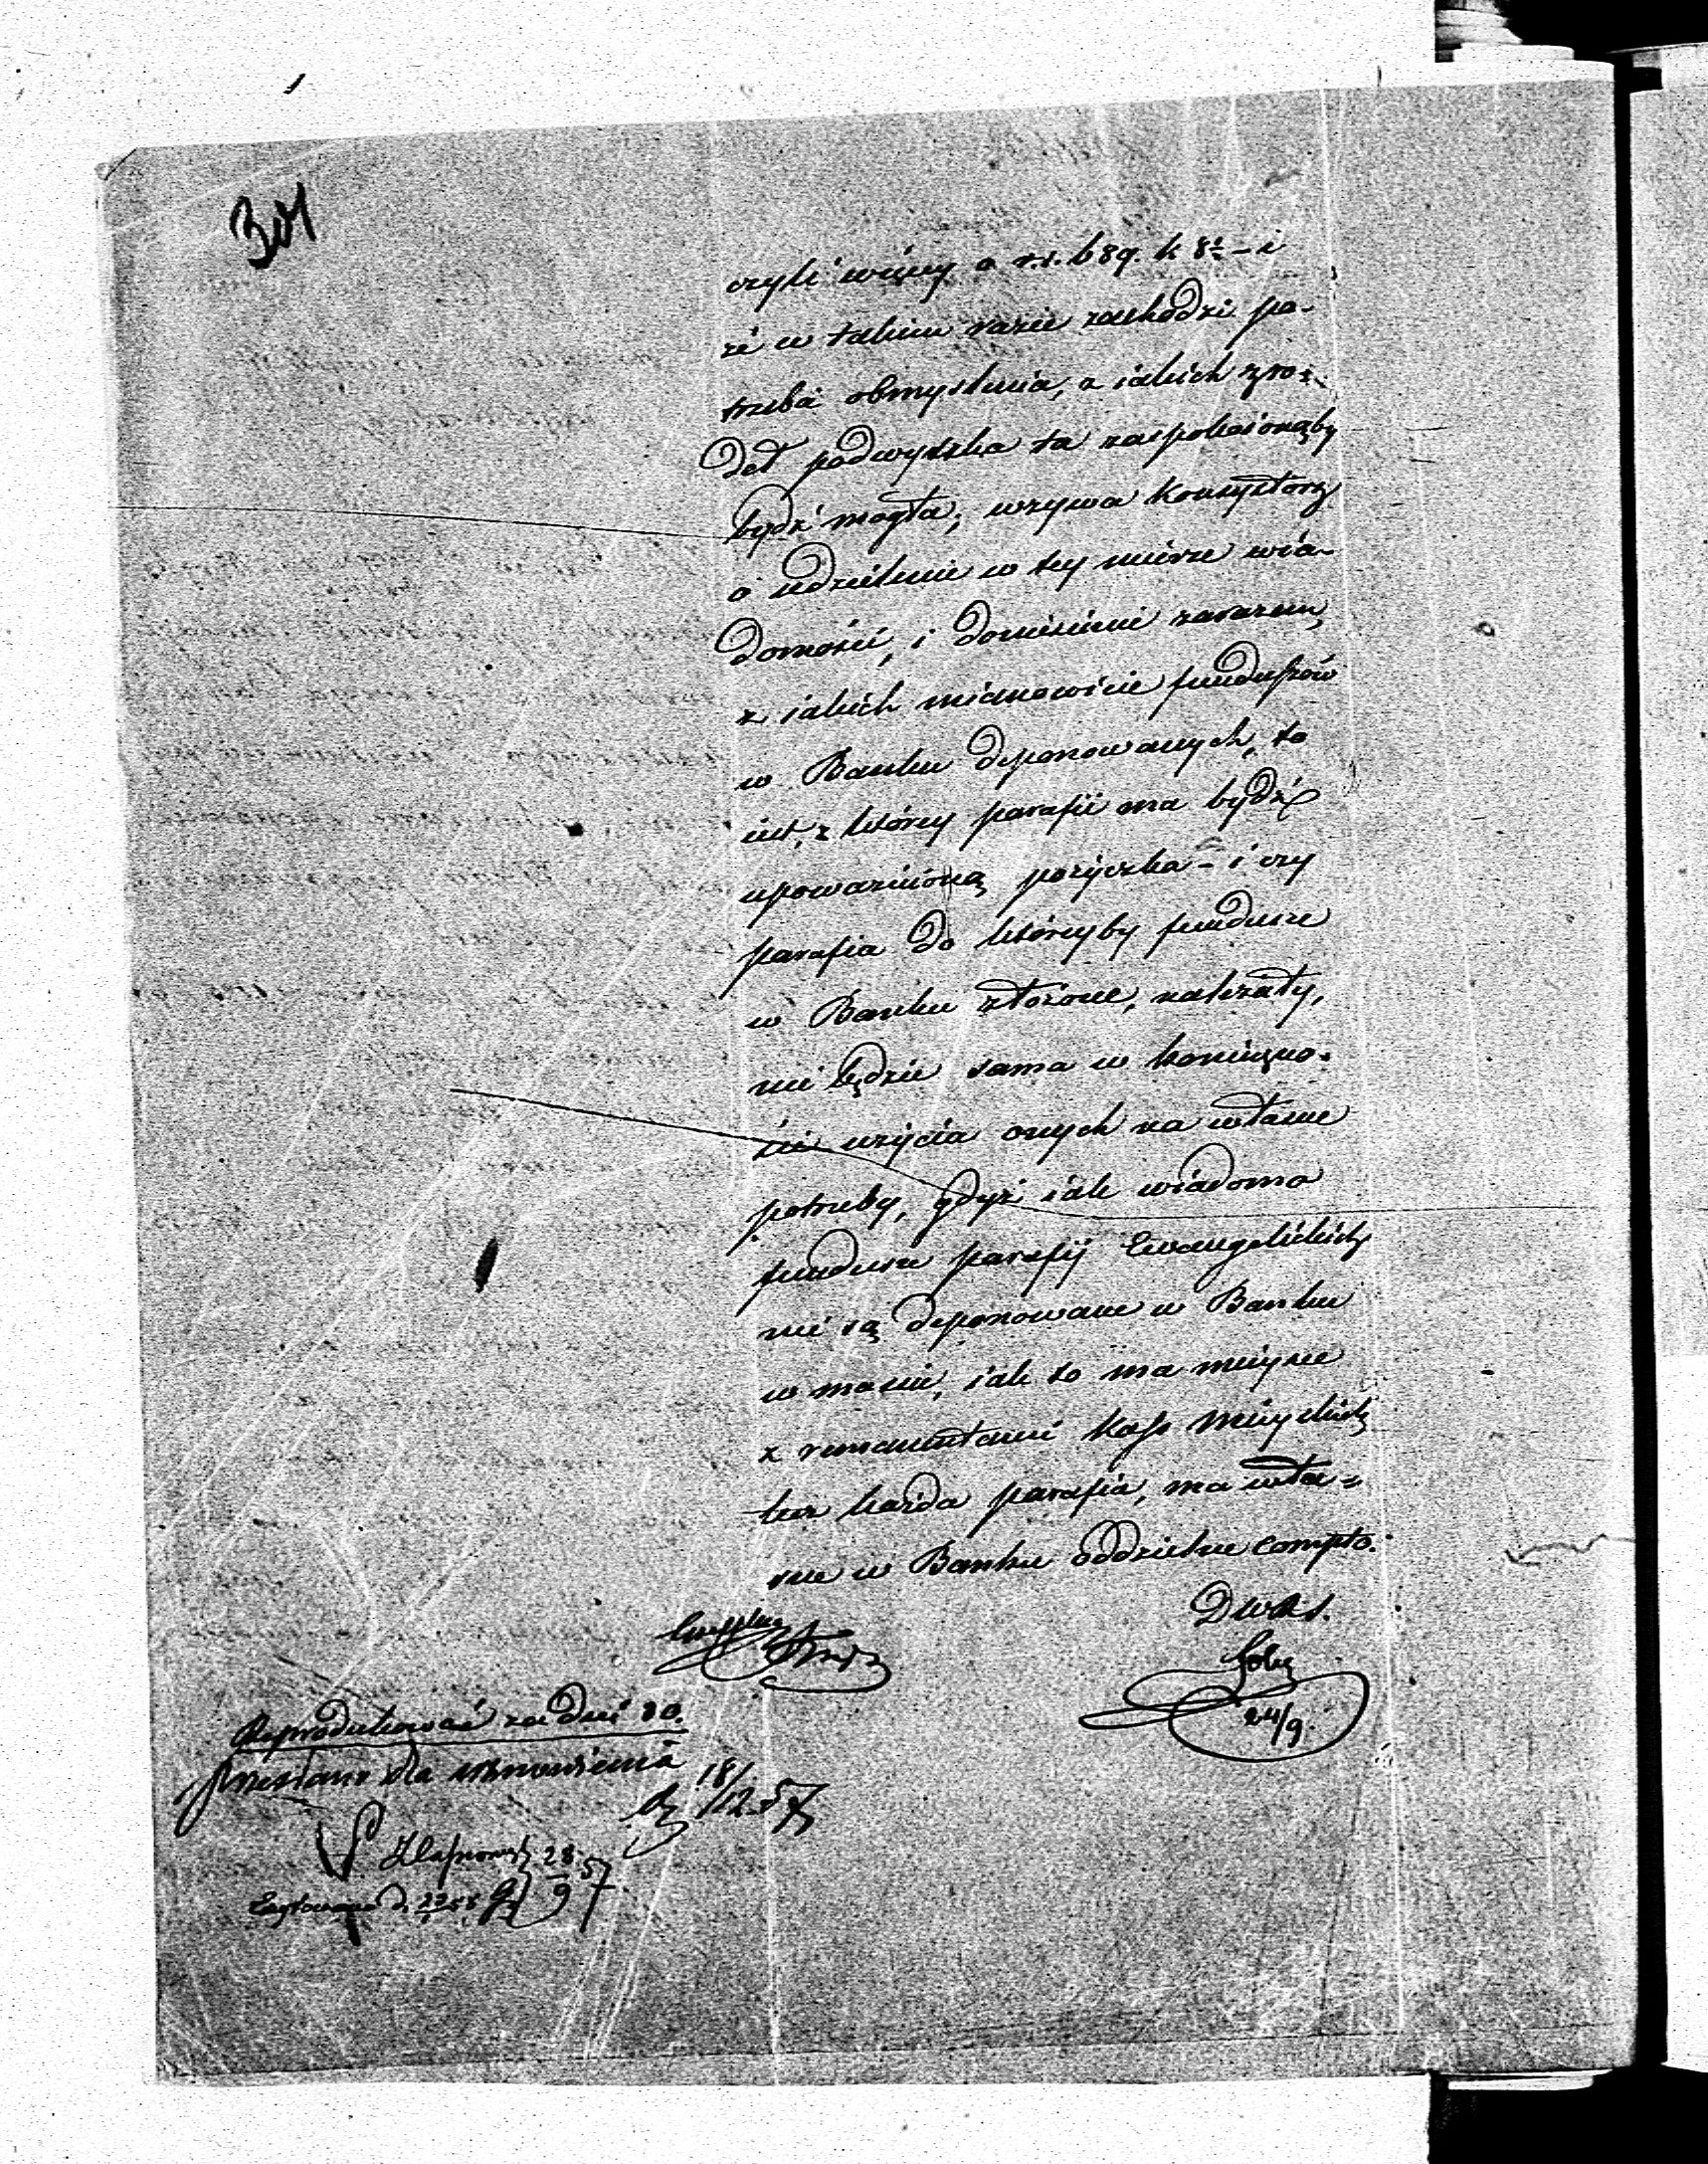 301
czyli więcej o r.s. 689. k 8½ - i
że w takim razie zachodzi po-
trzeba obmyślenia, z iakich źró-
deł podwyżka ta zaspokoionąby
bydź mogła; wzywa Konsystorz
o udzielenie w tey mierze wia-
domości, i doniesienie zarazem
z iakich mianowicie funduszów
w Banku deponowanych, to
iest, z którey parafii ma bydź
upoważnioną pożyczka - i czy
parafia do któreyby fundusze
w Banku złożone, należały,
nie będzie sama w konieczno-
ści użycia onych na własne
potrzeby, gdyż iak wiadomo
fundusze parafij Ewangelickich
nie są deponowane w Banku
w masie, iak to ma mieysce
z remanentami Kass Mieyskich
lecz każda parafia, ma wła=
sne w Banku oddzielne compto.
D W R S.
24/9.
Reprodukować za dni 30.
przesłano dla wznowienia
18/12 57
28/9 57